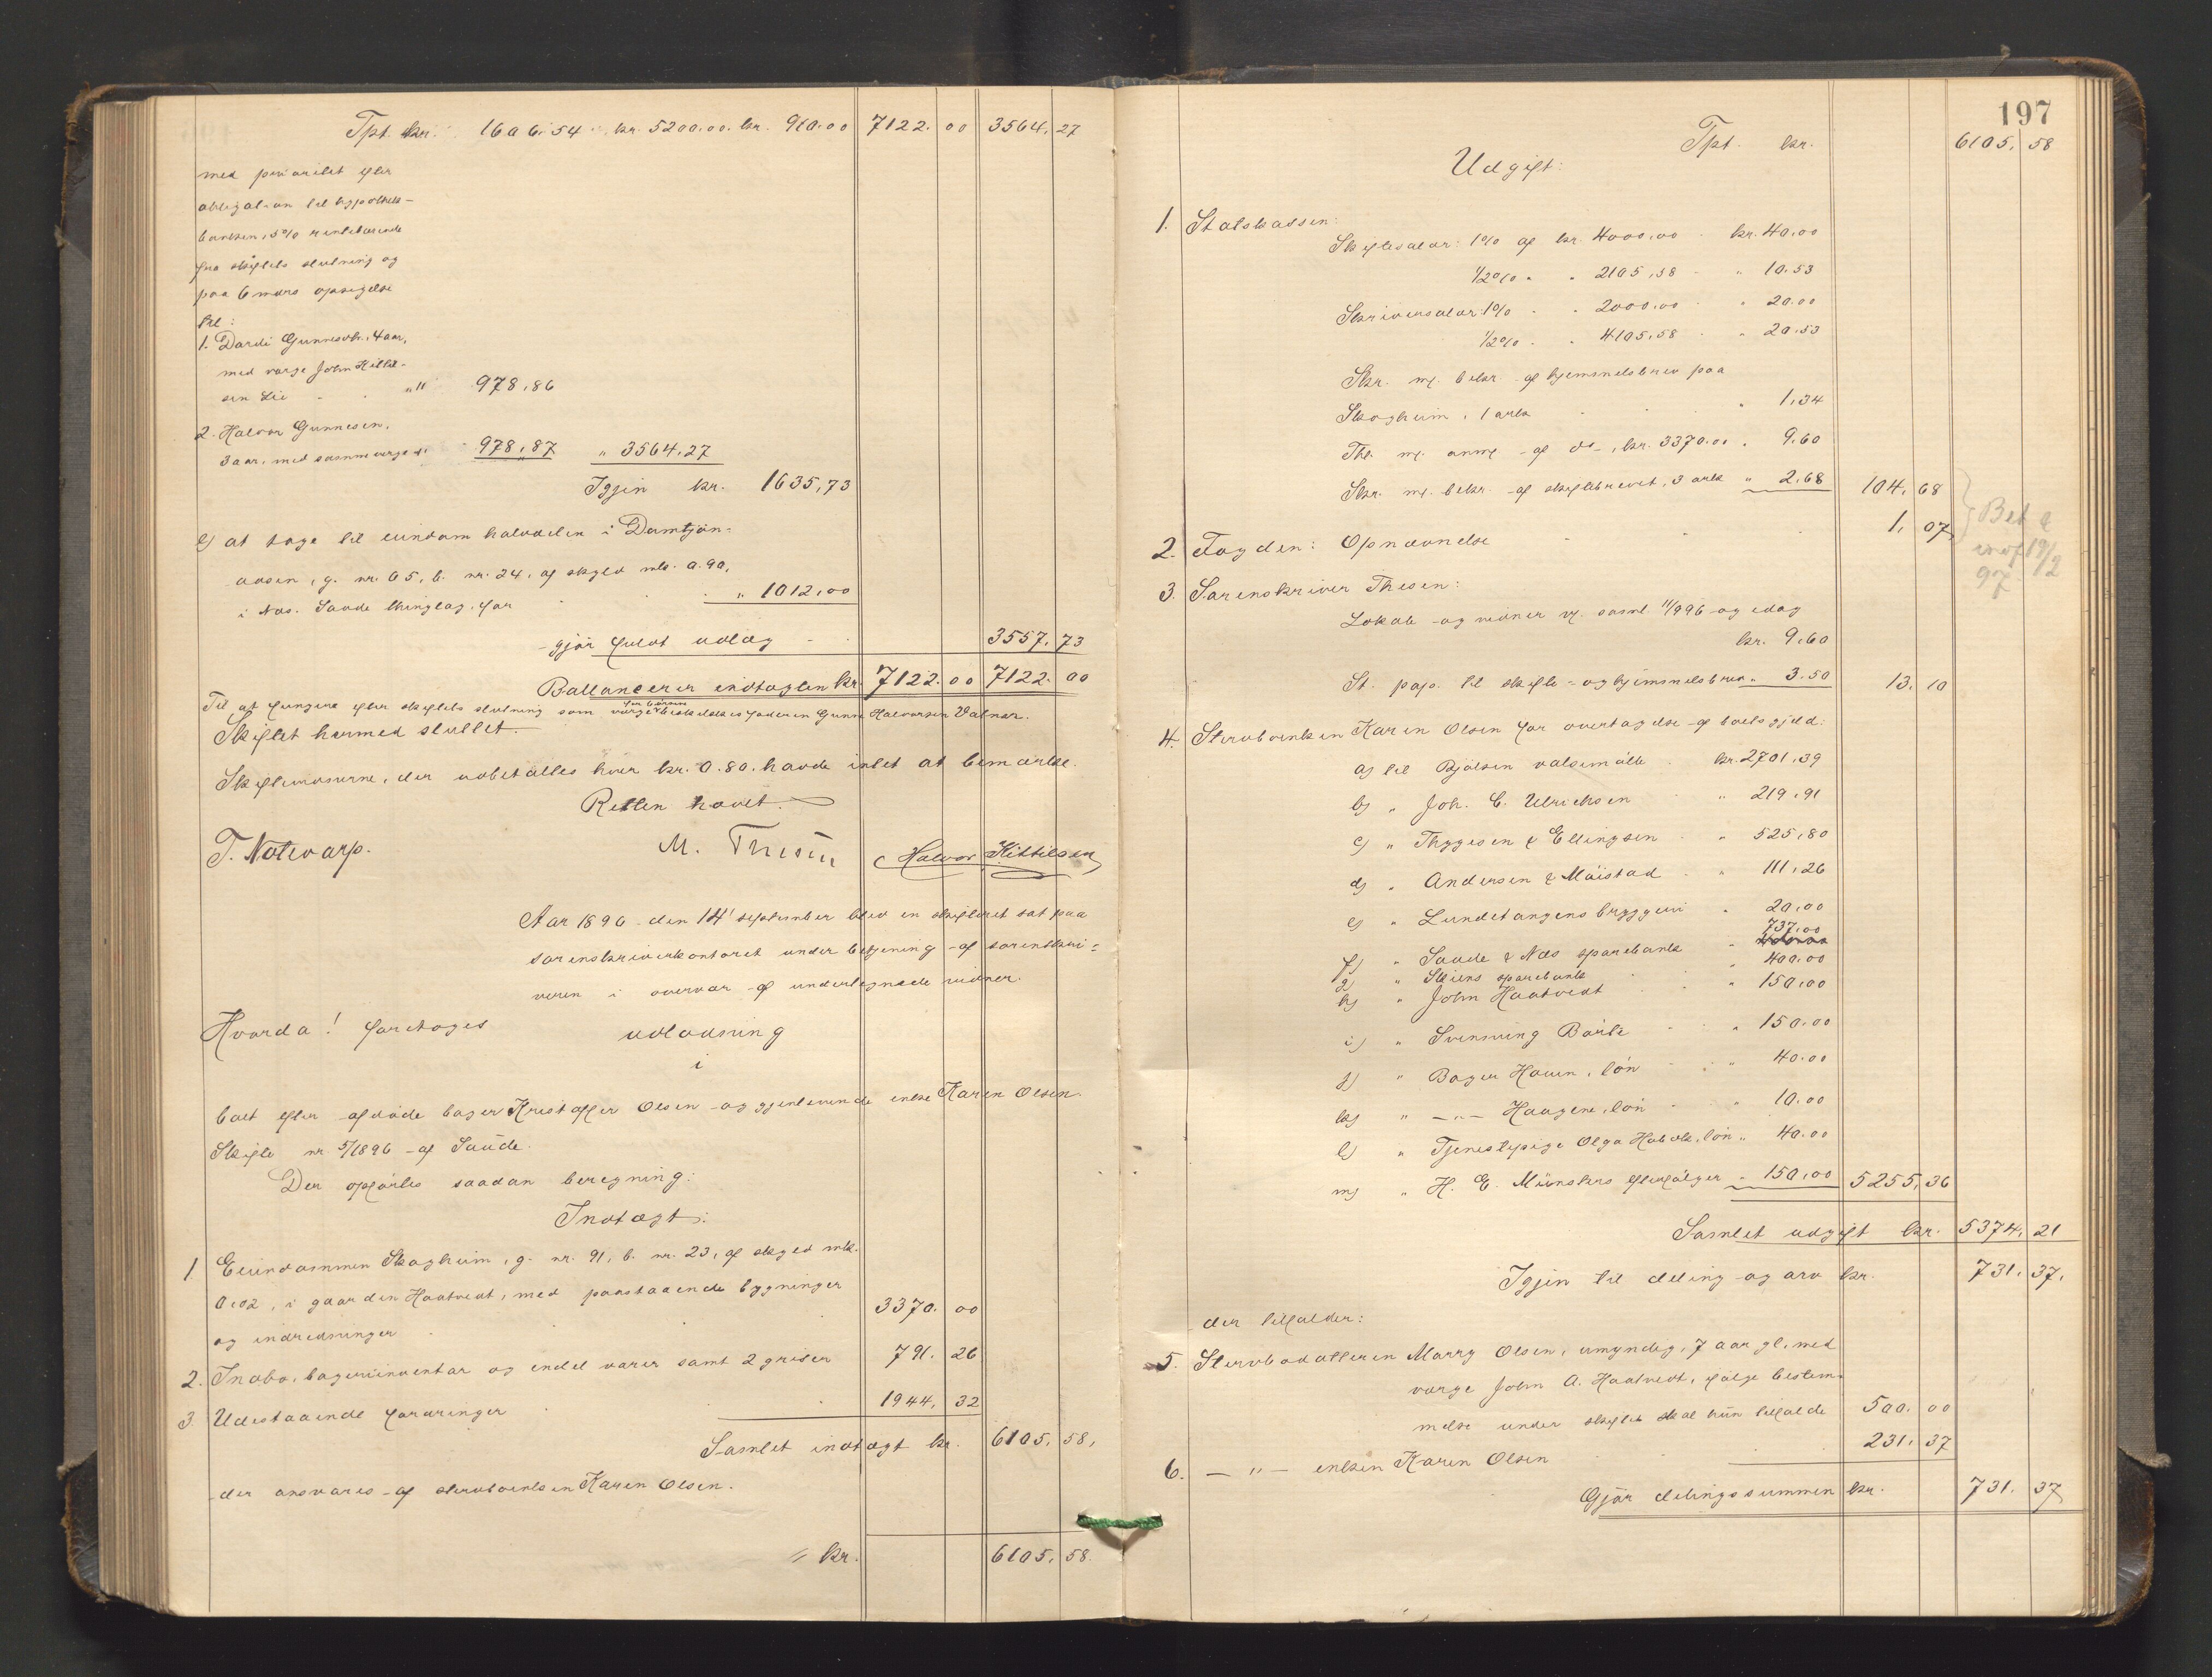 Tpt. kr. 1606.54 kr. 5200.00. kr. 910.00 7122.00 3564.27
med prioritet efter
obligation til hypothek-
banken, 5% rentebærende
fra skiftets slutning og
paa 6 mdrs opsigelse
til:
1. Dardi Gunnesdtr., 4 aar,
med værge John Kittil-
sen Lie - . " 978,86
2. Halvor Gunnesen,
3 aar, med samme værge 978,87 " 3564,27
Igjen kr. 1635,73
e) at tage til eiendom halvdelen i Damtjøn-
aasen, g. nr. 65, b. nr. 24, af skyld mk. 0.90,
i Næs. Saude thinglag, for " 1012,00
gjør fuldt udlæg - 3557.73
Ballancerer indtægten kr. 7122.00 7122.00
Til at fungere efter skiftets slutning som værge for børnene beskikkes faderen Gunne Halvorsen Valnar.
Skiftet hermed sluttet.
Skiftevidnerne, der udbetaltes hver kr. 0.80. havde intet at bemærke.
Retten hævet.
T. Notevarp. M. Thesen Halvor Kittilsen
Aar 1896 den 14' september blev en skifteret sat paa
sorenskriverkontoret under betjening af sorenskri-
veren i overvær af undertegnede vidner.
Hvorda! foretoges udlodning
i
boet efter afdøde bager Kristoffer Olsen og gjenlevende enke Karen Olsen.
Skifte nr 5/1896 af Saude.
Der opførtes saadan beregning:
Indtægt:
1 Eiendommen Skogheim, g. nr. 91, b. nr. 23, af skyld mk.
0,02, i gaarden Haatvedt, med paastaaende bygninger
og indredninger 3370.00
2. Indbo, bageriinventar og endel varer samt 2 griser 791.26
3 Udestaaende fordringer 1944.32
Samlet indtægt kr. 6105.58,
der ansvares af stervboenken Karen Olsen.
= kr. 6105.58.
197
Tpt. kr. 6105.58
Udgift:
1. Statskassen:
Skiftesalær: 1% af kr. 4000,00 kr. 40,00
1/2% " " 2105,58 " 10.53
Skriversalær: 1% " " 2000,00 " 20.00
1/2% " " 4105,58 " 20.53
Skr. m. bekr. af hjemmelsbrev paa
Skogheim, 1 ark " 1,34
Thl. m. anm. af do, kr. 3370.00 " 9.60
Skr. m. bekr. af skiftebrevet, 3 ark " 2.68 104.68
2. Fogden: Opnævnelse 1.07
Bet
19/2
97
3. Sorenskriver Thesen:
Lokale og vidner v. saml. 11/9 96 og idag
kr. 9.60
St. pap. til skifte- og hjemmelsbrev " 3.50 13.10
4. Stervboenken Karen Olsen for overtagelse af boets gjeld:
a) til Bjølsen valsemølle kr. 2701,39
b) " Joh. C. Ulrichsen " 219.91
c) " Thygesen & Ellingsen " 525,80
d) " Andersen & Møistad " 111,26
e) " Lundetangens bryggeri " 20,00
f) " Saude & Næs sparebank " 737,00
g) " Skiens sparebank " 400.00
h) " John Haatvedt " 150,00
i) " Svenning Bøile " 150.00
j) " Bager Hauen, løn " 40.00
k) " -"- Haugene, løn " 10.00
l) " Tjenestepige Olga Habæk, løn " 40.00
m) " H. E. Münsters efterfølger " 150,00 5255,36
Samlet udgift kr. 5374,21
Igjen til deling og arv kr. 731,37,
der tilfalder:
5. Stervbodatteren Marry Olsen, umyndig, 7 aar gl, med
værge John A. Haatvedt, følge bestem-
melse under skiftet skal hun tilfalde 500.00
6. -"- enken Karen Olsen 231.37
Gjør delingssummen kr. 731.37